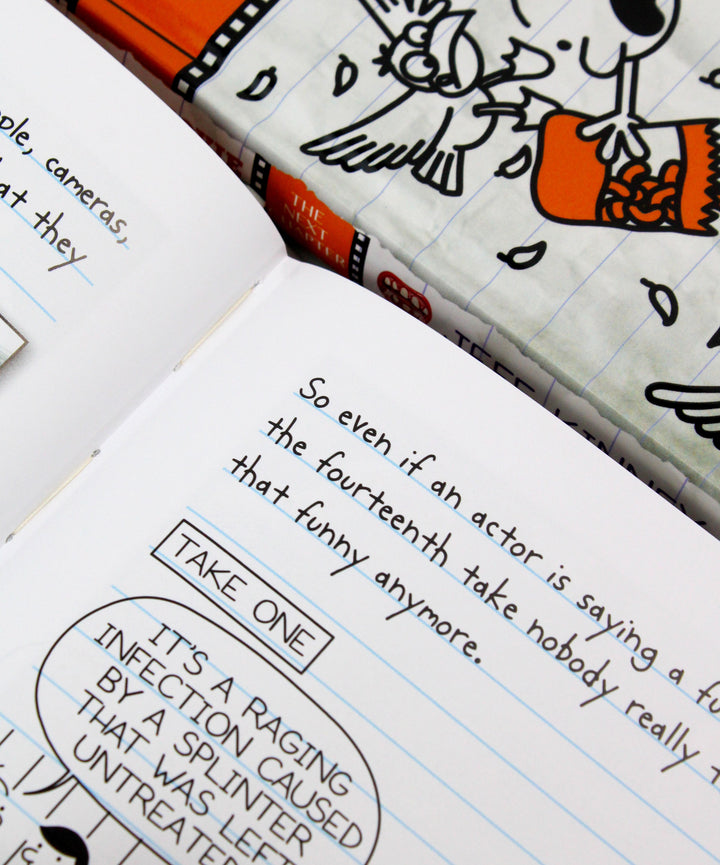 cameras,
they
THE
NEXT
So even if an actor is saying a
the fourteenth take nobody really
that funny anymore.
TAKE ONE
IT'S A RAGING
INFECTION CAUSED
BY A SPLINTER
THAT WAS LEFT
UNTREATED
JEFF KINNEY